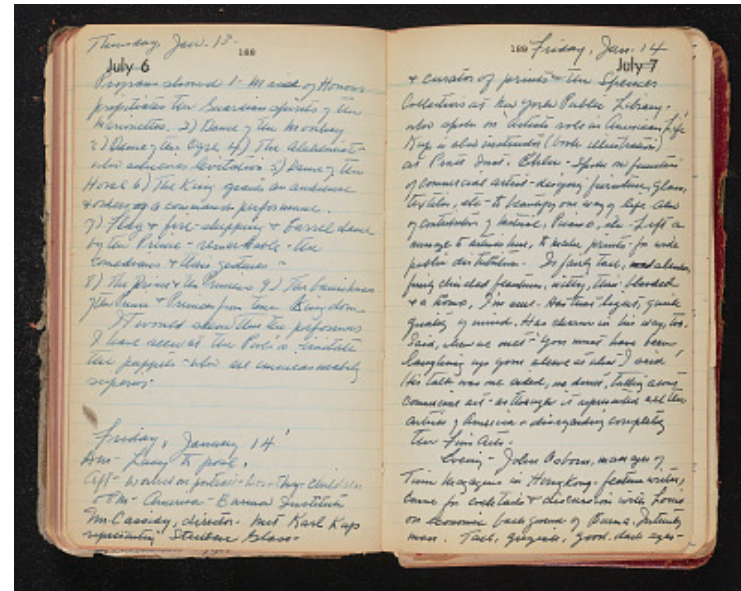 Thursday, Jan. 13 -
188
July 6
Program showed 1- Maid of Honour
propitiates the Guardian spirits of the
Marionettes. 2) Dance of the Monkey
3) Dance of the Ogre 4) The Alchemist -
who achieves levitation 5) Dance of the
Horse 6) The King grants an audience
& orders a command performance.
7) Flag & fire-stepping & barrel dance
by the Prince - remarkable - the
comedians & their gestures -
8) The Prince & the Princess 9) The banishment
of the Prince & Princess from the Kingdom
It would seem that the performers
I have seen at the Pwe's imitate
the puppets - who are immeasurably
superior.
Friday, January 14
Am - Lucy to pose.
Aft - worked on portrait - Dorothy's children
Pm - America - Burma Institute
Mr. Cassidy, director. Met Karl Kup
representing Steuben Glass -
189 Friday, Jan. 14
July 7
& curator of prints - the Spencer
Collection at New York Public Library -
who spoke on artists role in American Life
Kup is also instructor (book illustration)
at Pratt Inst. Spoke on function
of commercial artist - designing furniture, glass,
textiles, etc - to beautify our way of life. Also
of contribution of Matisse, Picasso, etc. Left a
message to artists here, to make prints for wide
public distribution. Is fairly tall,
finely chiseled features, witty, thin blooded
& a homo, I'm sure. Has that light, quick
quality of mind. Has charm in his way, too.
Said, when we met "You must have been
laughing up your sleeve at what I said
His talk was one sided, no doubt, talking about
commercial art - as though it represented all the
artists of America & disregarding completely
the Fine Arts.
Evening - John Osborn, manager of
Time Magazine in Hongkong - feature writer,
came for cocktails & discussion with Louis
on economic background of Burma. Intently
man. Tall, good, dark eyes -